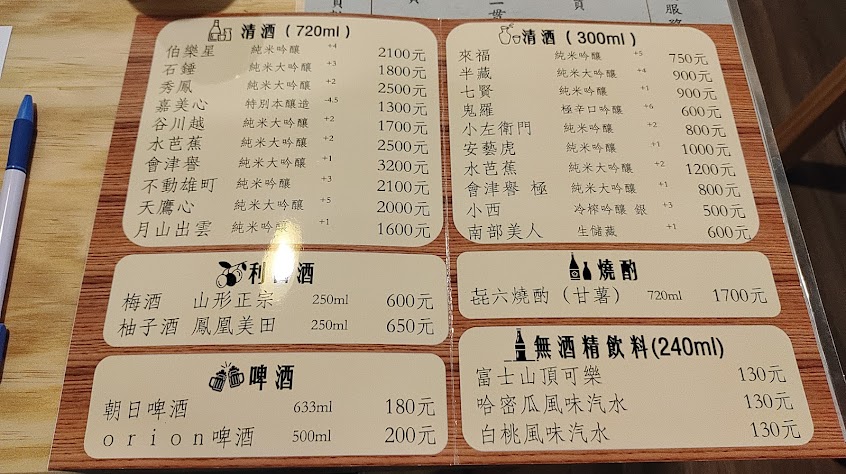 清酒（720ml）
伯樂星 純米吟釀 +4 2100元
石錘 純米大吟釀 +3 1800元
秀鳳 純米大吟釀 +2 2500元
嘉美心 特別本釀造 -4.5 1300元
谷川越 純米大吟釀 +2 1700元
水芭蕉 純米大吟釀 +2 2500元
會津譽 純米大吟釀 +1 3200元
不動雄町 純米吟釀 +3 2100元
天鷹心 純米大吟釀 +5 2000元
月山出雲 純米吟釀 +1 1600元
利口酒
梅酒 山形正宗 250ml 600元
柚子酒 鳳凰美田 250ml 650元
啤酒
朝日啤酒 633ml 180元
orion啤酒 500ml 200元
清酒（300ml）
來福 純米吟釀 +5 750元
半藏 純米大吟釀 +4 900元
七賢 純米吟釀 +1 900元
鬼羅 極辛口吟釀 +6 600元
小左衛門 純米吟釀 +2 800元
安藝虎 純米吟釀 +1 1000元
水芭蕉 純米大吟釀 +2 1200元
會津譽 極 純米大吟釀 +1 800元
小西 冷榨吟釀 銀 +3 500元
南部美人 生儲藏 +1 600元
燒酌
㐂六燒酌（甘薯） 720ml 1700元
無酒精飲料(240ml)
富士山頂可樂 130元
哈密瓜風味汽水 130元
白桃風味汽水 130元